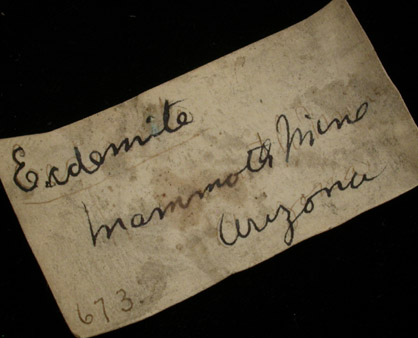 Exdemite
Mammoth Mine
Arizona
673.